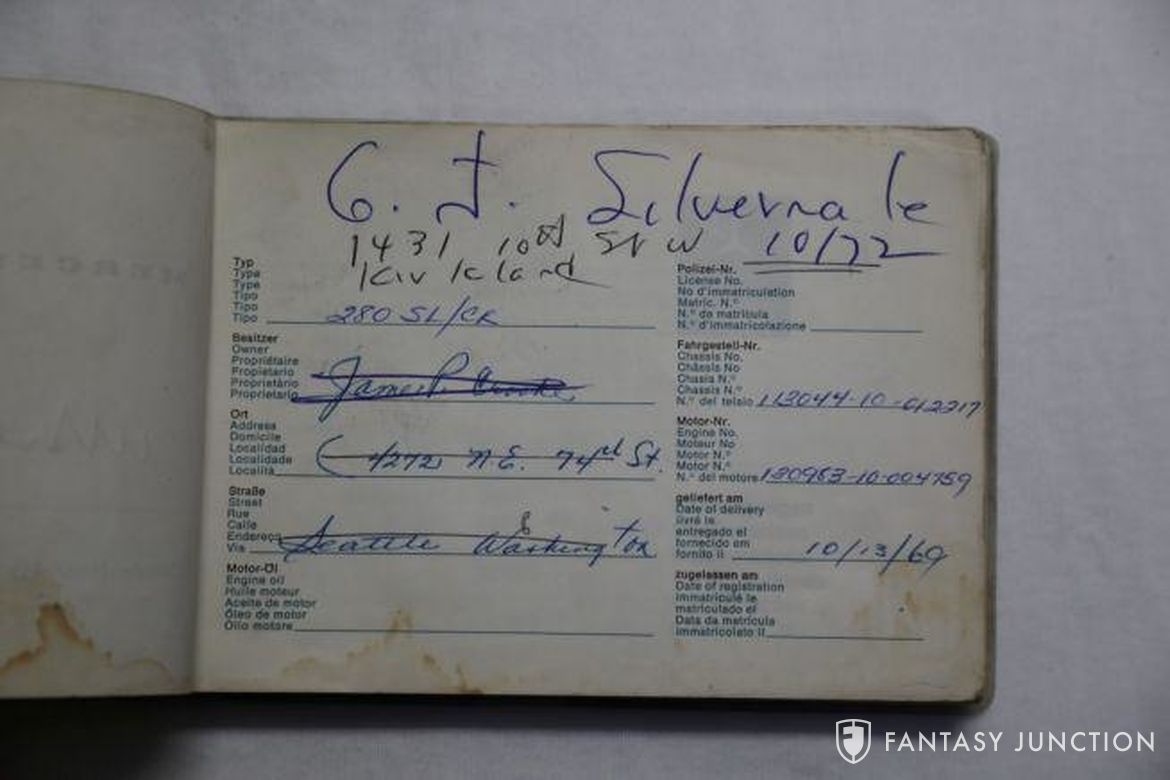 G. J. Silvernale
1431 10th St W 10/72
Kirkland
Typ
Type
Type
Tipo
Tipo
Tipo
280 SL/CR
Besitzer
Owner
Propriétaire
Propietario
Proprietário
Proprietario
James P.
Ort
Address
Domicile
Localidad
Localidade
Località
4272 N.E. 74th St.
Straße
Street
Rue
Calle
Endereço
Via
Seattle Washington
Motor-Öl
Engine oil
Huile moteur
Aceite de motor
Óleo de motor
Olio motore
Polizei-Nr.
License No.
No d'immatriculation
Matric. N.º
N.º da matrícula
N.º d'immatricolazione
Fahrgestell-Nr.
Chassis No.
Châssis No
Chasis N.º
Chassis N.º
N.º del telaio 113044-10-012217
Motor-Nr.
Engine No.
Moteur No
Motor N.º
Motor N.º
N.º del motore 130983-10-004759
geliefert am
Date of delivery
livré le
entregado el
fornecido em
fornito il 10/13/69
zugelassen am
Date of registration
immatriculé le
matriculado el
Data da matrícula
immatricolato il
FANTASY JUNCTION